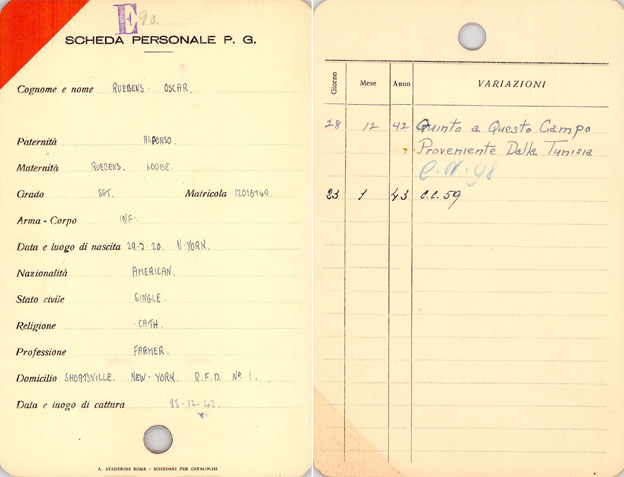 E 90.
SCHEDA PERSONALE P. G.
Cognome e nome RUEBENS - OSCAR.
Paternità ALPONSO.
Maternità RUEBENS. LOUISE.
Grado SGT. Matricola 12018769.
Arma - Corpo INF.
Data e luogo di nascita 29-3-20. N-YORK.
Nazionalità AMERICAN.
Stato civile SINGLE.
Religione CATH.
Professione FARMER.
Domicilio SHORTSVILLE. NEW-YORK. R.F.D. Nº 1.
Data e luogo di cattura 23-12-42.
A. STADERINI ROMA - SCHEDARI PER CATALOGHI
Giorno Mese Anno VARIAZIONI
28 12 42 Quinto a Questo Campo
Proveniente Dalla Tunisia
C.N. 98
23 1 43 C.C. 59